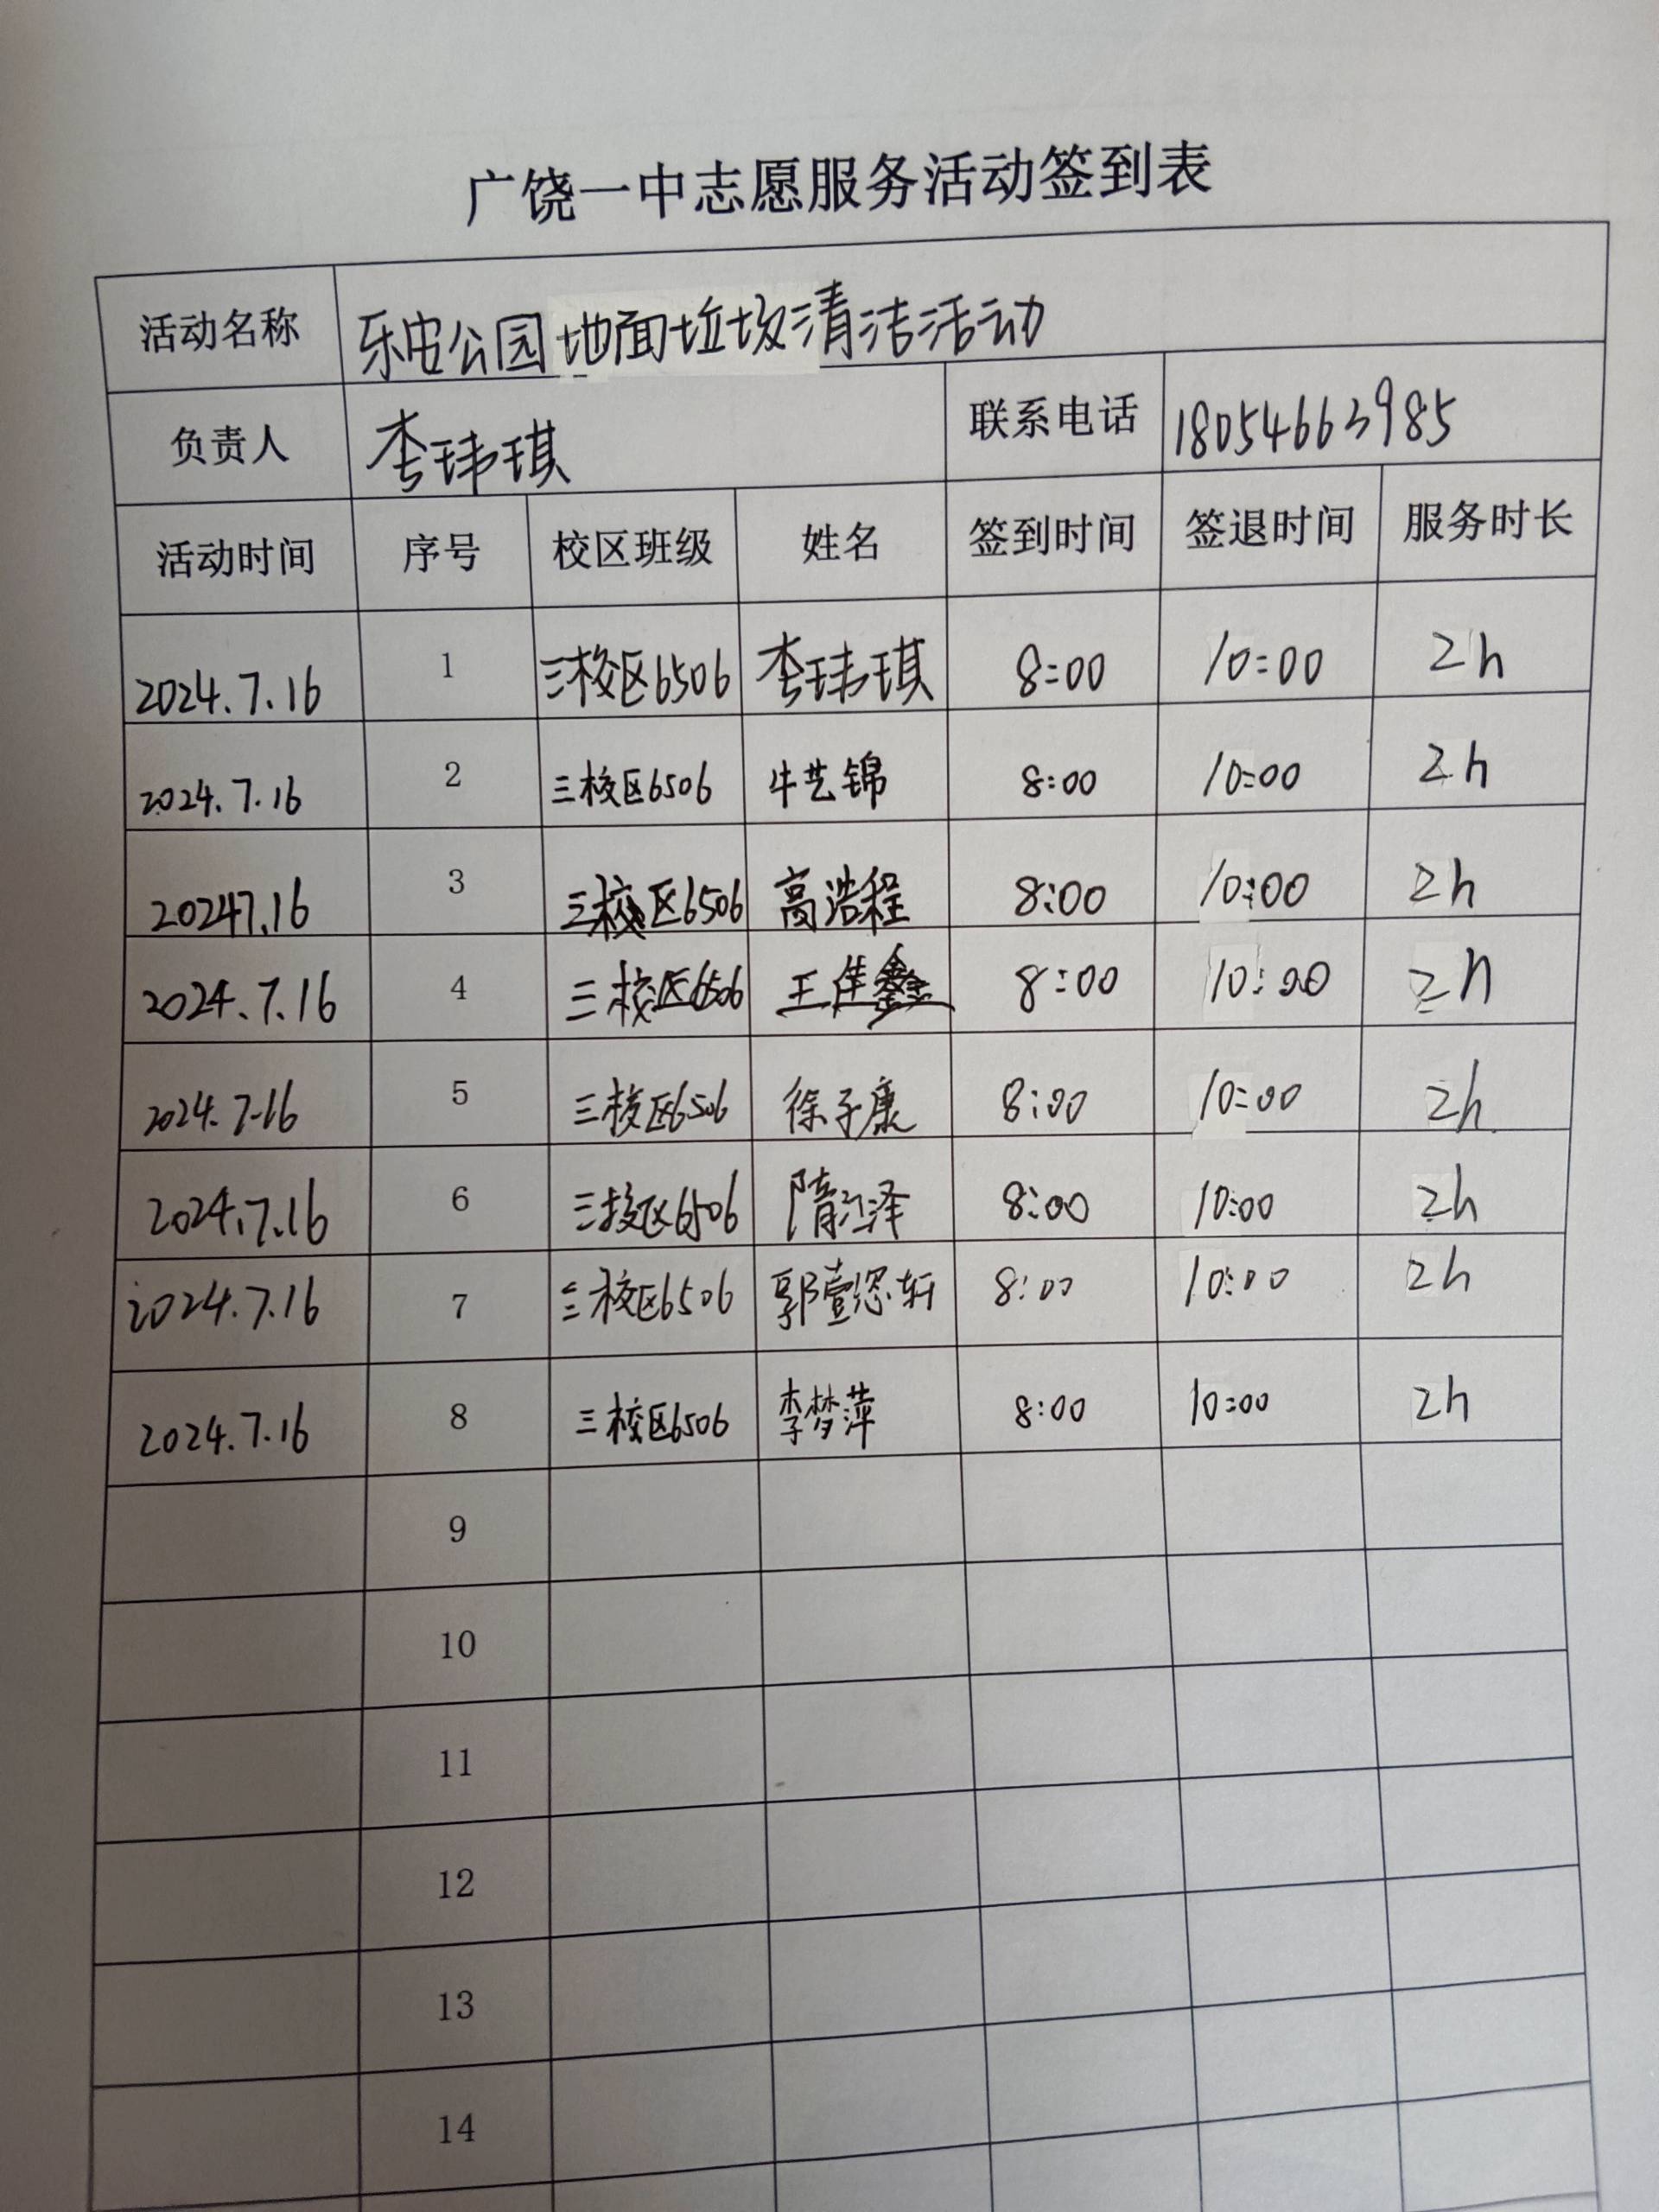 广饶一中志愿服务活动签到表
活动名称 乐安公园地面垃圾清洁活动
负责人 李玮琪 联系电话 18054663985
活动时间 序号 校区班级 姓名 签到时间 签退时间 服务时长
2024.7.16 1 三校区6506 李玮琪 8:00 10:00 2h
2024.7.16 2 三校区6506 牛艺锦 8:00 10:00 2h
20247.16 3 三校区6506 高浩程 8:00 10:00 2h
2024.7.16 4 三校区6506 王佳鑫 8:00 10:00 2h
2024.7-16 5 三校区6506 徐子康 8:00 10:00 2h
2024.7.16 6 三校区6506 隋江泽 8:00 10:00 2h
2024.7.16 7 三校区6506 郭壹恣轩 8:00 10:00 2h
2024.7.16 8 三校区6506 李梦萍 8:00 10:00 2h
9
10
11
12
13
14